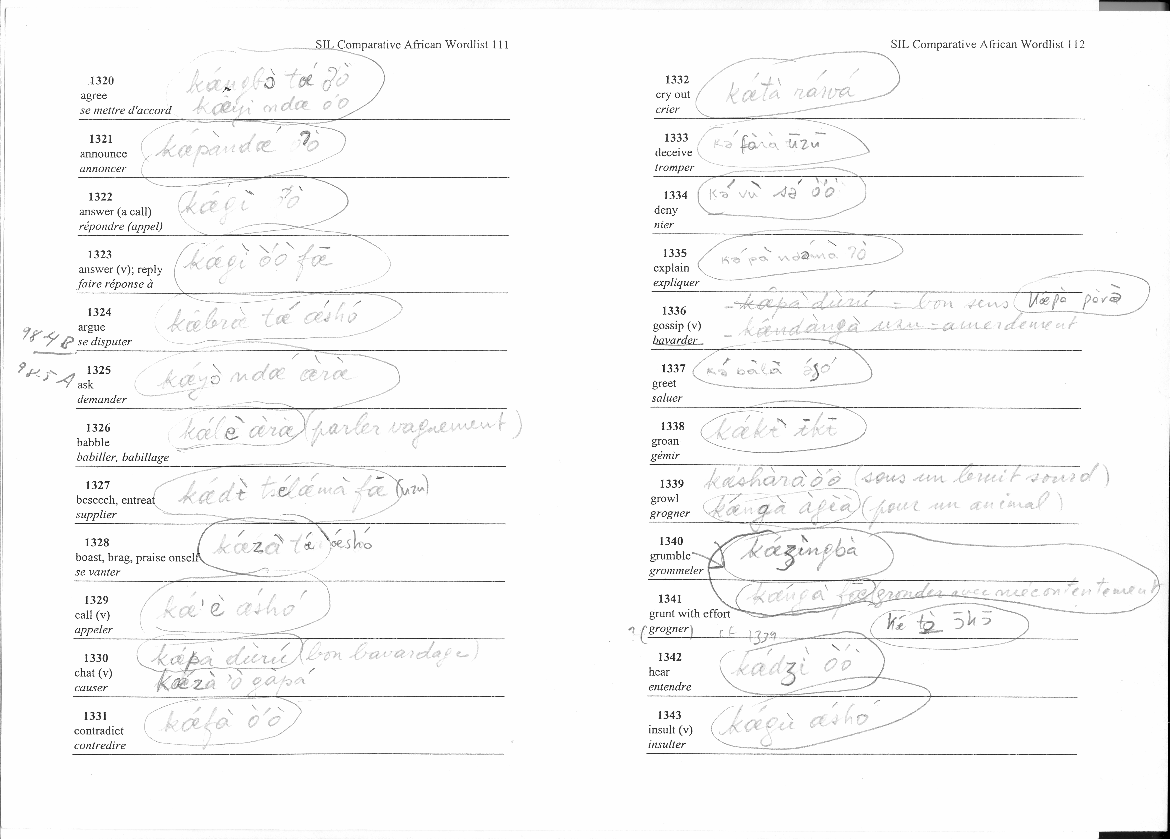 SIL Comparative African Wordlist 111
1320
agree
se mettre d'accord
kǽngbɔ̀ tǽ ʔò
kǽyi ndœ óo
1321
announce
annoncer
kǽpàndǽ ʔò
1322
answer (a call)
répondre (appel)
kǽgì ʔò
1323
answer (v); reply
faire réponse à
kǽgì òò fœ̄
1324
argue
se disputer
kǽbrà tǽ ǽshó
98-4 B
1325
ask
demander
kǽyò ndǽ œ̀rœ̀
98.5 A
1326
babble
babiller, babillage
kálè œ̀rœ (parler vaguement)
1327
beseech, entreat
supplier
kǽdɨ̀ tsélǽmà fœ̄ (uzu)
1328
boast, brag, praise onself
se vanter
kǽzà tǽ ǽshó
1329
call (v)
appeler
ká'è áshó
1330
chat (v)
causer
kápà dùrú (bon bavardage)
kǽzà 'ò gàpá
1331
contradict
contredire
kǽfà ò'ò
SIL Comparative African Wordlist 112
1332
cry out
crier
kǽtà ráwá
1333
deceive
tromper
kə́ fàrà ūzū
1334
deny
nier
kə́ vù sə́ òò
1335
explain
expliquer
kə́ pà ʔò
1336
gossip (v)
bavarder
- kápà dùrú = bon sens kǽpà pə̀və̄
- kǽndàngà uzu = amerdement
1337
greet
saluer
kə́ bàlà ə́ʃó
1338
groan
gémir
kǽkɨ̀ ɨ̄kɨ̄
1339
growl
grogner
kǽshàrà òò (sous un bruit sourd)
kǽngà àgià (pour un animal)
1340
grumble
grommeler
kǽzìngbà
1341
grunt with effort
(grogner)
kǽngà fœ (gronder avec mécontentement
? cf 1339
ká tò ɔ̄kɔ̄
1342
hear
entendre
kádzì òó
1343
insult (v)
insulter
kǽgù áshó